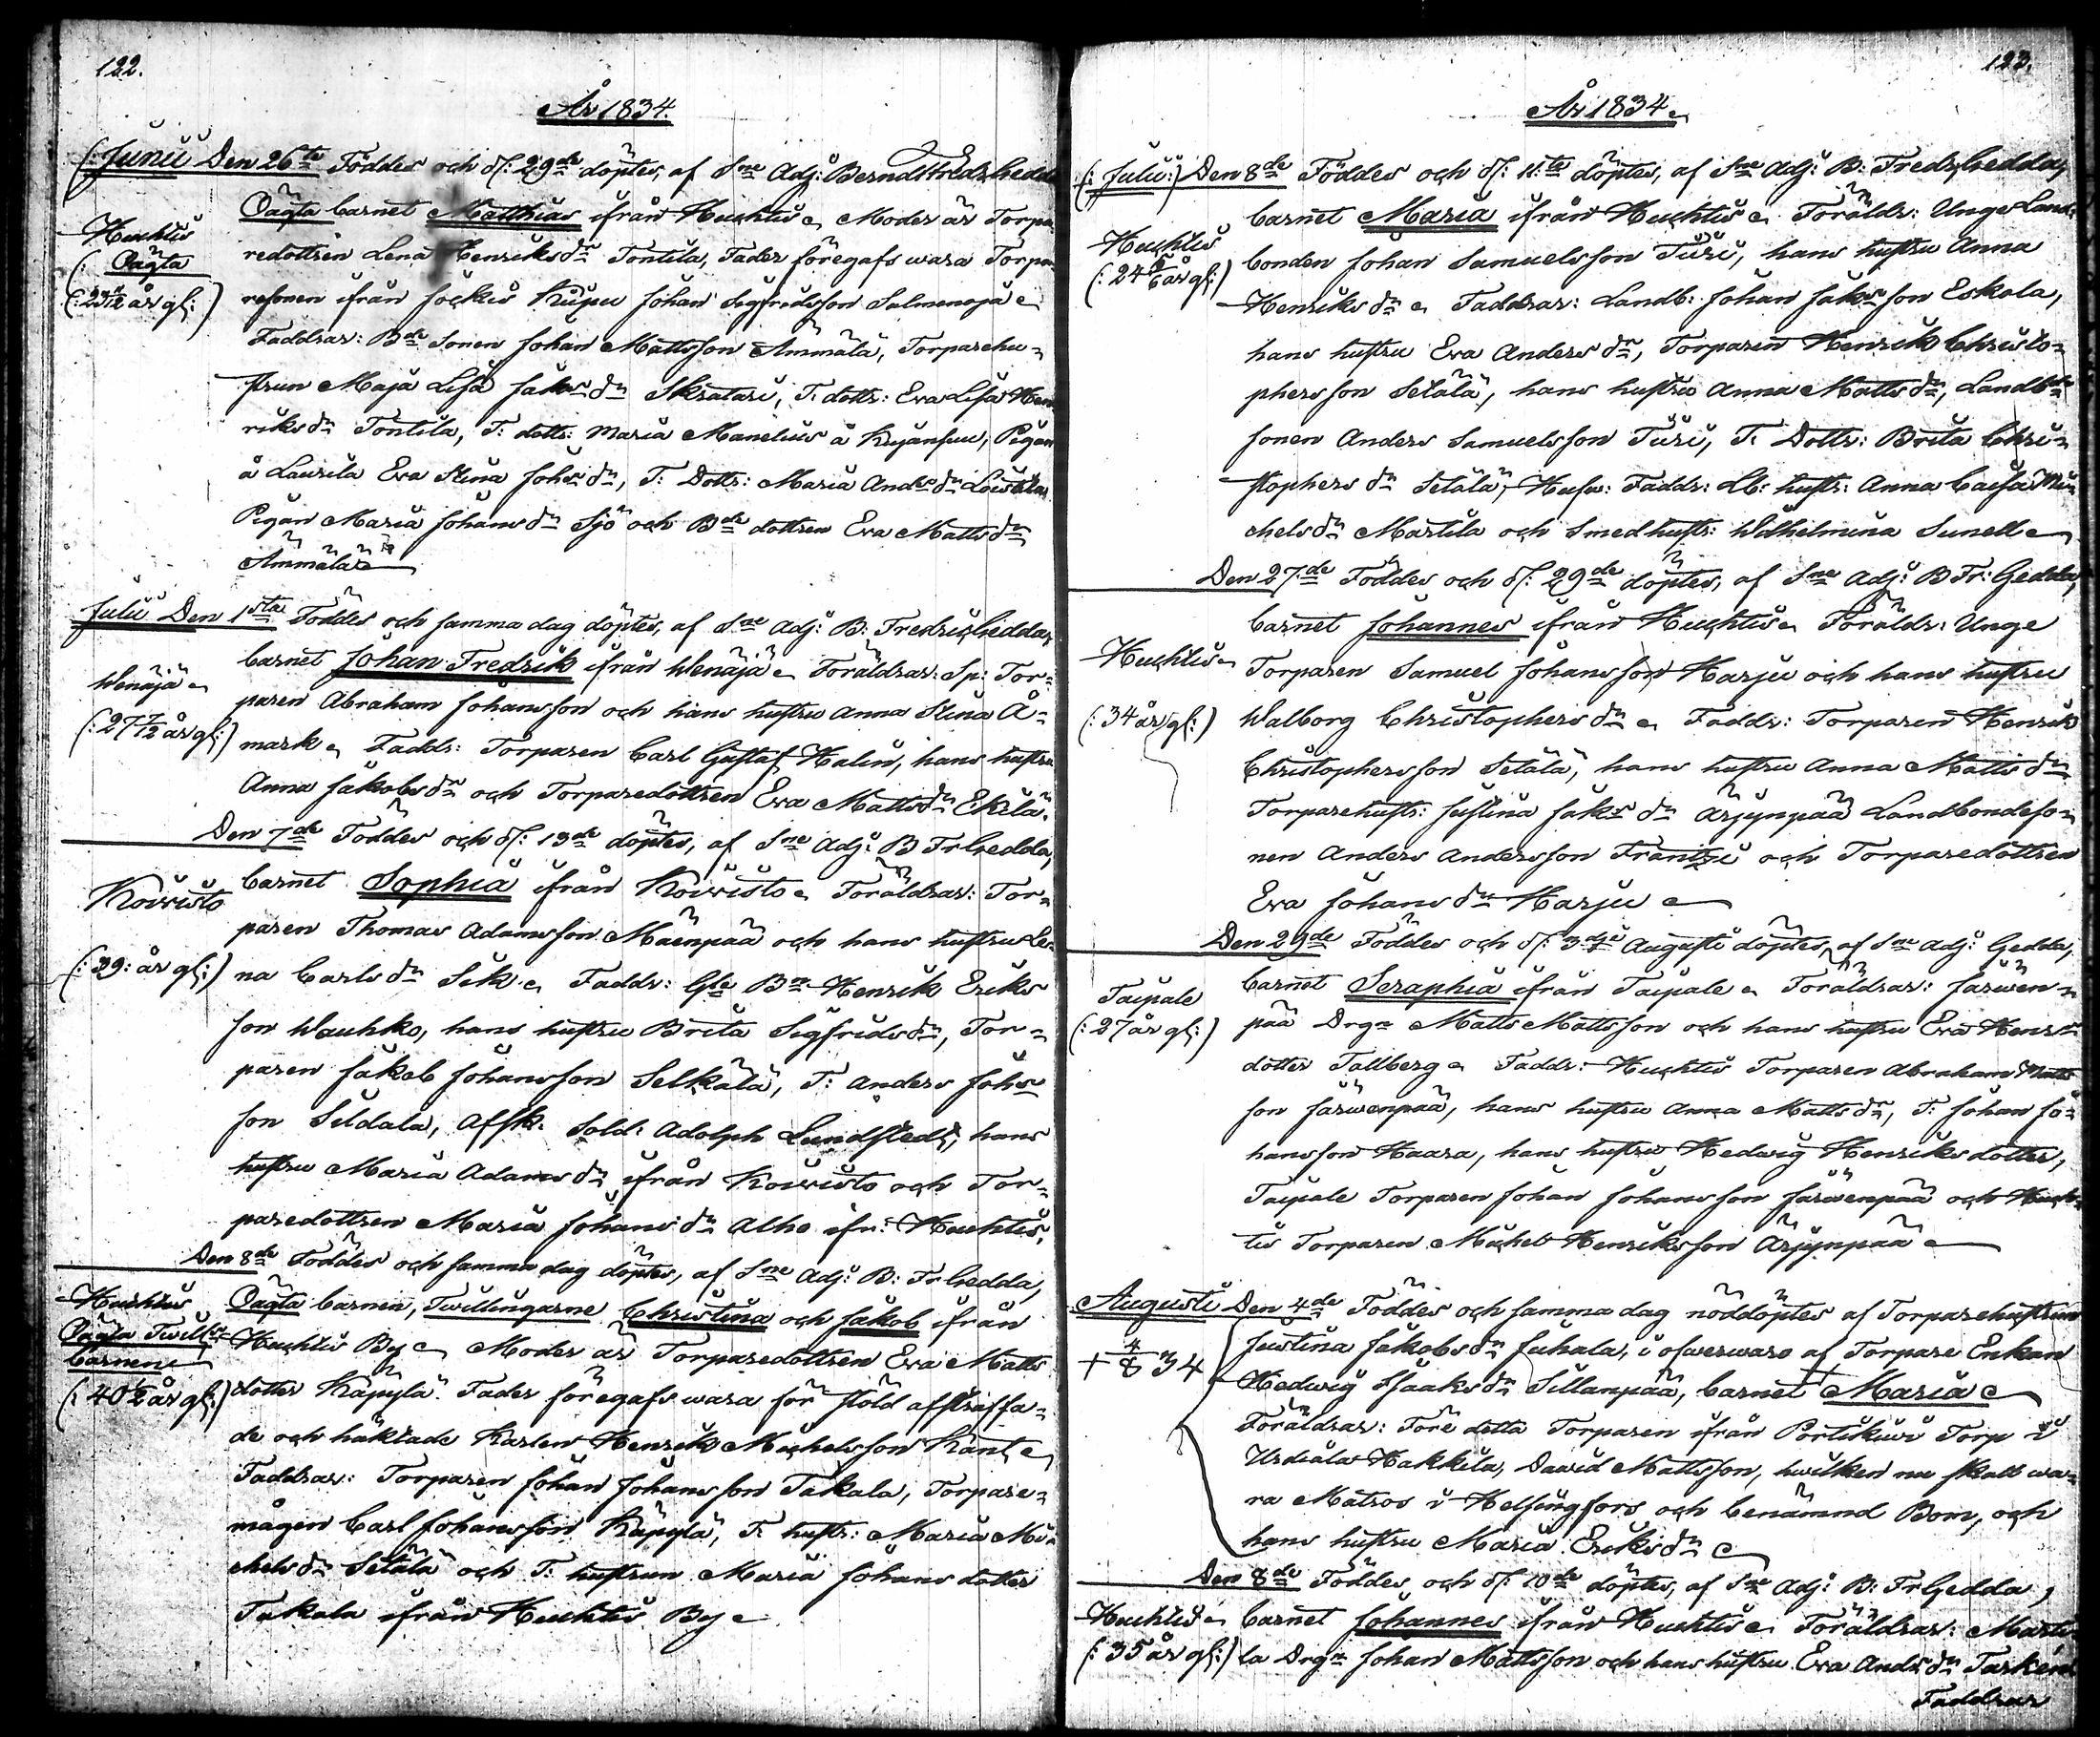 122.
År 1834.
(: Junii Den 26te Föddes och d: 29de döptes, af Sne Adj: Berndt Fredr Gedda
Oägta barnet Matthias ifrån Huchtis. Moder är Torpa-
Huchtis
redottren Lena Henriksdr Tontila, Fader föregafs wara Torpa-
(: Oägta
resonen ifrån Jockis Kuipu Johan Sigfridsson Salmenoja
år gl:)
Faddrar: Bde Sonen Johan Mattsson Ämmälä, Torparehu-
strun Maja Lisa Jaksdr Skratari, T: dottr: Eva Lisa Hen-
riksdr Tontila, T: dottr: Maria Manelius å Kujansuu, Pigan
å Laurila Eva Stina Johsdr, T: Dottr: Maria Andsdr
Pigan Maria Johansdr Sjö och Bde dottren Eva Mattsdr
Ämmälä
Julii Den 1sta Föddes och samma dag döptes, af Sne Adj: B: Fredric Gedda,
barnet Johan Fredrik ifrån Wenäjä. Föräldrar: Sp: Tor-
Wenäjä
paren Abraham Johansson och hans hustru Anna Stina Å-
(: 27 7/12 år gl:)
mark. Faddr: Torparen Carl Gustaf Halin, hans hustru
Anna Jakobsdr och Torparedottren Eva Mattsdr Ekilä.
Den 7de Föddes och d: 13de döptes, af Sne Adj: B Fr Gedda,
barnet Sophia ifrån Koivisto. Föräldrar: Tor-
Koivisto
paren Thomas Adamsson Mäenpää och hans hustru Le-
(: 39: år gl:)
na Carlsdr Sik. Faddr: Gle Bn Henrik Eriks
son Wauhko, hans hustru Brita Sigfridsdr, Tor-
paren Jakob Johansson Selkälä, T: Anders Johs
son Sildala, Afsk. Sold: Adolph Lundstedt, hans
hustru Maria Adamsdr ifrån Koivisto och Tor-
paredottren Maria Johansdr Alho ifn: Huchtis.
Den 8de Föddes och samma dag döptes, af Sne Adj: B: Fr Gedda,
Huchtis
Oägta barnen, Twillingarne Christina och Jakob ifrån
Oägta Twill:
Huchtis By. Moder är Torparedottren Eva Matts
barnene
dotter Käpylä. Fader föregafs wara för stöld afstraffa-
(: 40 1/2 år gl:)
de och häktade Karlen Henrik Michelsson Känt
Faddrar: Torparen Johan Johansson Takala, Torpare-
mågen Carl Johansson Käpylä, T: hustr: Maria Mi-
chelsdr Setälä och T: hustrun Maria Johansdotter
Takala ifrån Huchtis By
123.
År 1834.
(: Julii:) Den 8de Föddes och d: 11:te döptes, af Sne Adj: B: Fredr Gedda,
barnet Maria ifrån Huchtis. Föräldr: Unge Land-
Huchtis
bonden Johan Samuelsson Turi, hans hustru Anna
år gl:)
Henriksdr. Faddrar: Landb: Johan Jaksson Eskola,
hans hustru Eva Andersdr, Torparen Henrik Christo-
phersson Setälä, hans hustru Anna Mattsdr, Landbde
sonen Anders Samuelsson Turi, T: Dottr: Brita Chri-
stophersdr Setälä, Faddr: Lb: hustr: Anna Caisa Mi-
chelsdr Martila och Smedhustr: Wilhelmina Sunell
Den 27de Föddes och d: 29de döptes, af Sne Adj: B Fr: Gedda,
barnet Johannes ifrån Huchtis. Föräldr: Unge
Huchtis
Torparen Samuel Johansson Harju och hans hustru
(: 34 år gl:)
Walborg Christophersdr. Faddr: Torparen Henrik
Christophersson Setälä, hans hustru Anna Mattsdr
Torparehustr: Justina Jaksdr Ärjynpää Landbondeso-
nen Anders Andersson Frantzi och Torparedottren
Eva Johansdr Harju
Den 29de Föddes och d: 3dje Augusti döptes, af Sne Adj: Gedda,
barnet Seraphia ifrån Taipale. Föräldrar: Järwen-
Taipale
(: 27 år gl:)
pää Drgn Matts Mattsson och hans hustru Eva Henr
dotter Tallberg. Faddr: Huchtis Torparen Abraham Matts
son Järwenpää, hans hustru Anna Mattsdr, T: Johan Jo-
hansson Haara, hans hustru Hedwig Henriksdotter,
Taipale Torparen Johan Johansson Järwenpää och Huch-
tis Torparen Michel Henriksson Ärjynpää
Augusti Den 4de Föddes och samma dag nöddöptes af Torparehustrun
+ 4/8 34
Justina Jakobsdr Juhala, i öfwerwaro af Torpare Enkan
Hedwig Isaaksdr Sillanpää, barnet Maria
Föräldrar: Före detta Torparen ifrån Portikiwi Torp i
Urdiala Hakkila, David Mattsson, hwilken nu skall wa-
ra Matros i Helsingfors och benämnd Bom, och
hans hustru Maria Eriksdr
Den 8de Föddes och d: 10de döptes, af Sne Adj: B: Fr Gedda,
Huchtis
barnet Johannes ifrån Huchtis. Föräldrar: Marti-
(: 35 år gl:)
la Drgn Johan Mattsson och hans hustru Eva Andsdr
Faddrar